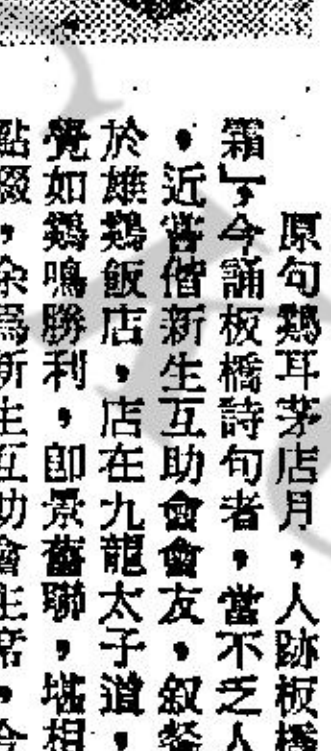 原句鷄耳茅店月，人跡板橋
霜」，今誦板橋詩句者，當不乏人
，近嘗偕新生互助會會友，叙餐
於雄鷄飯店，店在九龍太子道，
覺如鷄鳴勝利，卽景舊聯，堪相
點綴，余爲新生互助會主席，今